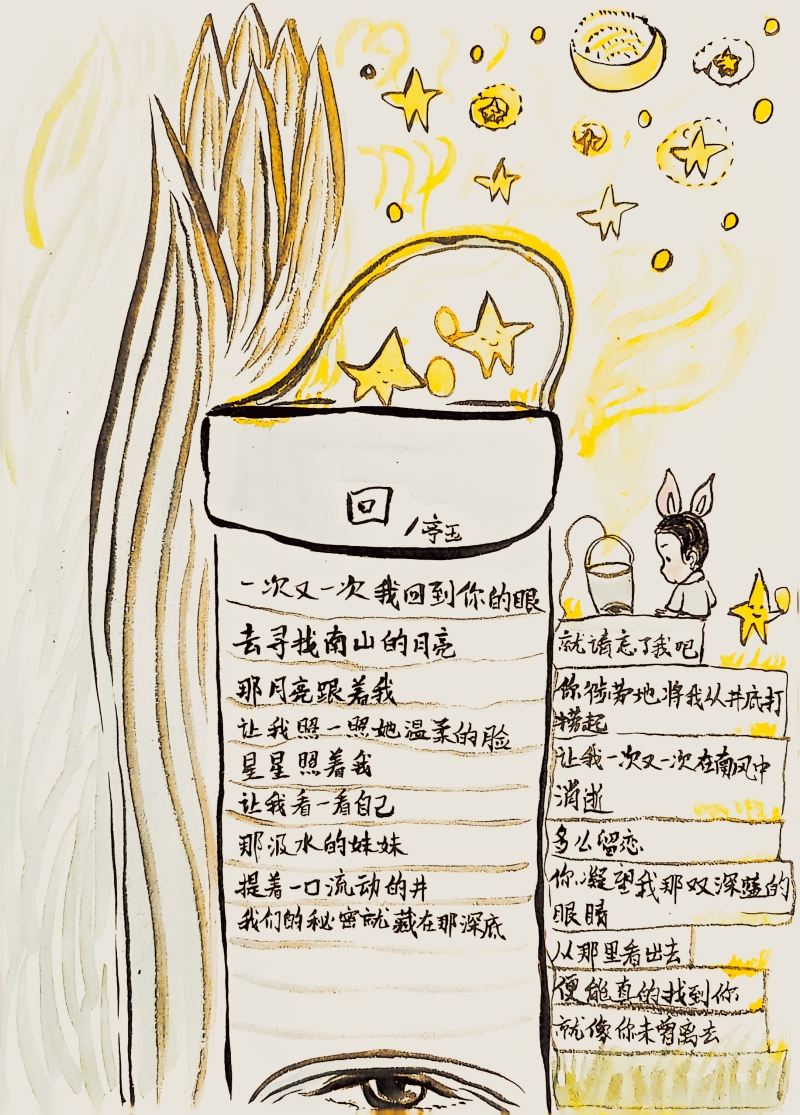 回
/亭玉
一次又一次我回到你的眼
去寻找南山的月亮
那月亮跟着我
让我照一照她温柔的脸
星星照着我
让我看一看自己
那汲水的妹妹
提着一口流动的井
我们的秘密就藏在那深底
就请忘了我吧
你徒劳地将我从井底打
捞起
让我一次又一次在南风中
消逝
多么留恋
你凝望我那双深蓝的
眼睛
从那里看出去
便能真的找到你
就像你未曾离去